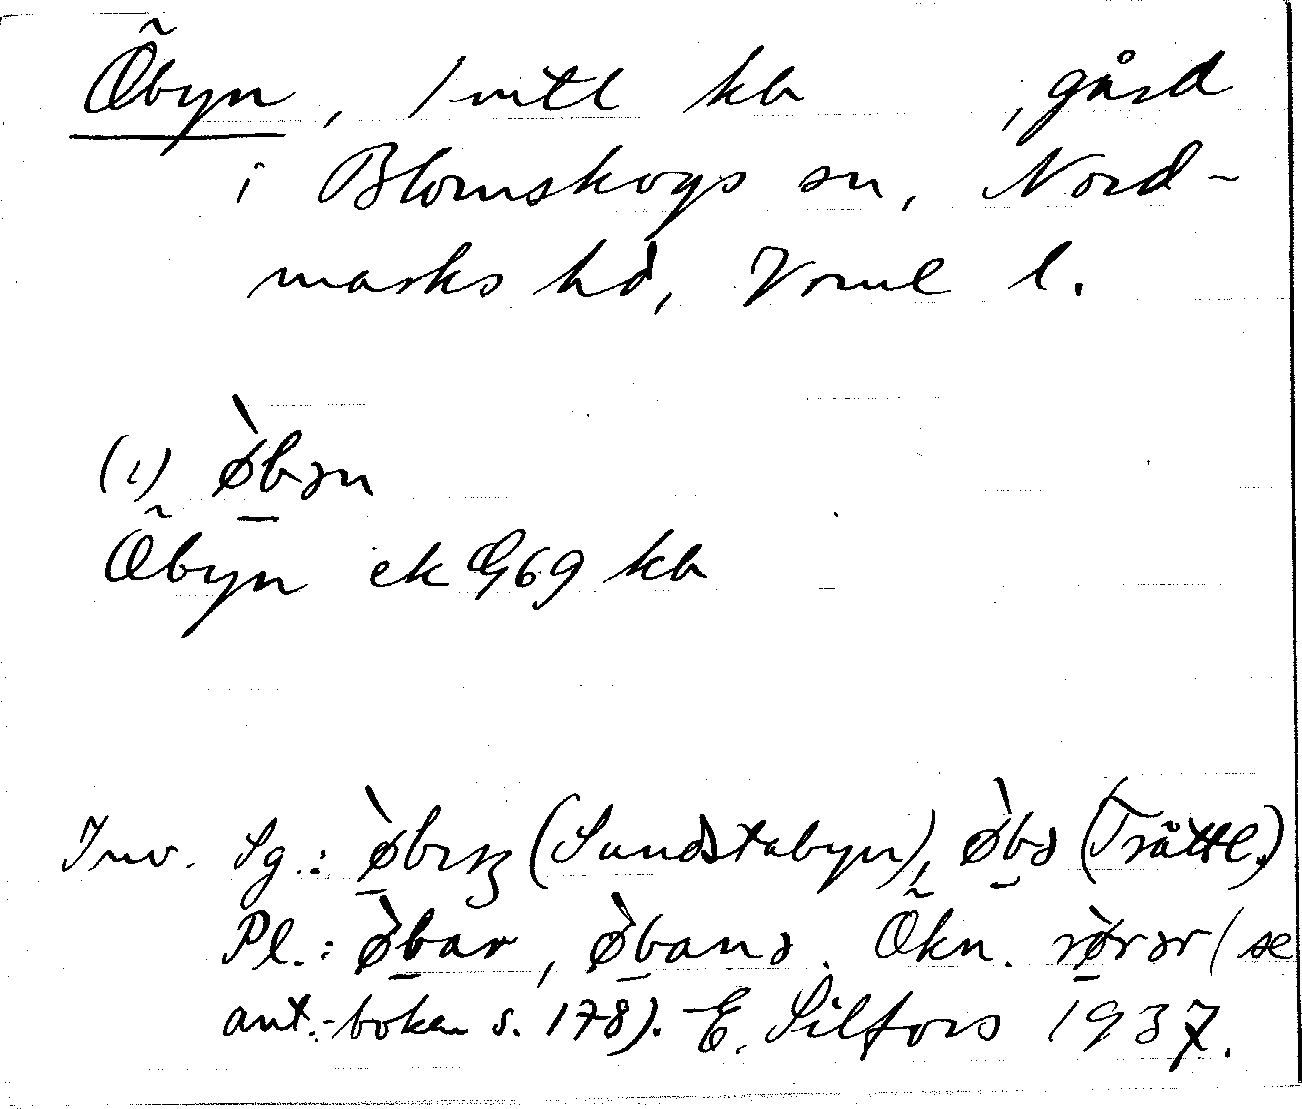 Õbyn, 1 mtl kb , gård
i Blomskogs sn, Nord-
marks hd, Vrml l.
(1) ø̀bən
Õbyn ek G69 kb
Inv. Sg.: ø̀bɪŋ (Sundstabyn), ø̀bə (Tråttl.)
Pl.: ø̀bar, ø̀banə. Õkn. rø̀rər (se
ant.-boken s. 178). E. Silfors 1937.